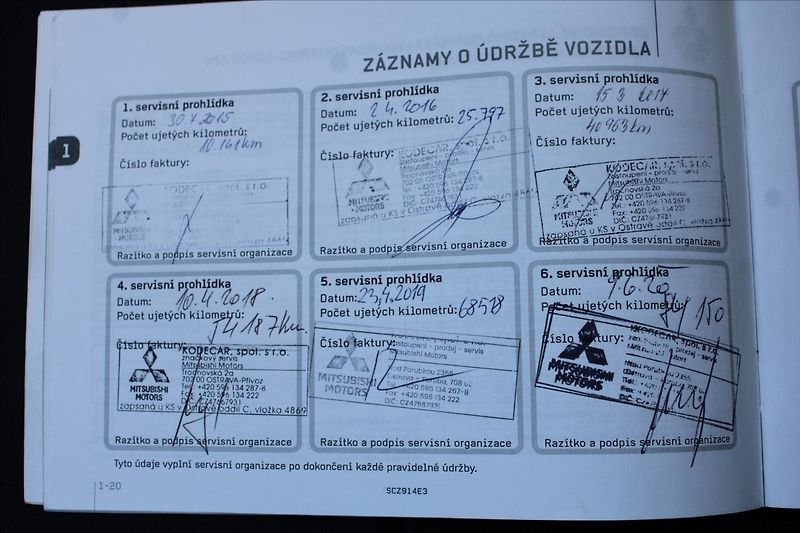 ZÁZNAMY O ÚDRŽBĚ VOZIDLA
1
1. servisní prohlídka
Datum: 30.4.2015
Počet ujetých kilometrů:
10.141km
Číslo faktury:
KODECAR, spol. s r.o.
MITSUBISHI
MOTORS
Razítko a podpis servisní organizace
2. servisní prohlídka
Datum: 2 4. 2016
Počet ujetých kilometrů: 25.797
Číslo faktury:
KODECAR, spol. s r.o.
zastoupení - prodej - servis
Mitsubishi Motors
Trocnovská 2a
702 00 OSTRAVA-Přívoz
Tel.: +420 596 134 287-8
Fax: +420 596 134 222
DIČ: CZ47667931
zapsaná u KS v Ostravě
MITSUBISHI
MOTORS
Razítko a podpis servisní organizace
3. servisní prohlídka
Datum: 15.3 2017
Počet ujetých kilometrů:
40963km
Číslo faktury:
KODECAR, spol. s r.o.
zastoupení - prodej - servis
Mitsubishi Motors
Trocnovská 2a
702 00 OSTRAVA-Přívoz
Tel.: +420 596 134 287-8
Fax: +420 596 134 222
DIČ: CZ47667931
zapsaná u KS v Ostravě oddíl C, vložka 4869
MITSUBISHI
MOTORS
Razítko a podpis servisní organizace
4. servisní prohlídka
Datum: 10.4.2018.
Počet ujetých kilometrů:
54187km.
Číslo faktury:
KODECAR, spol. s r.o.
značkový servis
Mitsubishi Motors
Trocnovská 2a
702 00 OSTRAVA-Přívoz
Tel.: +420 596 134 287-8
Fax: +420 596 134 222
DIČ: CZ47667931
zapsaná u KS v Ostravě oddíl C, vložka 4869
MITSUBISHI
MOTORS
Razítko a podpis servisní organizace
5. servisní prohlídka
Datum: 23,4.2019
Počet ujetých kilometrů: 68518
Číslo faktury:
zastoupení - prodej - servis
Mitsubishi Motors
Nad Porubkou 2355
Ostrava - Poruba, 708 00
Tel.: +420 596 134 287-8
Fax: +420 596 134 222
DIČ: CZ47667931
MITSUBISHI
MOTORS
Razítko a podpis servisní organizace
6. servisní prohlídka
Datum: 9.6.20
Počet ujetých kilometrů:
150
Číslo faktury:
KODECAR, spol. s r.o.
Mitsubishi Motors
MITSUBISHI
MOTORS
Razítko a podpis servisní organizace
Tyto údaje vyplní servisní organizace po dokončení každé pravidelné údržby.
1-20
SCZ914E3